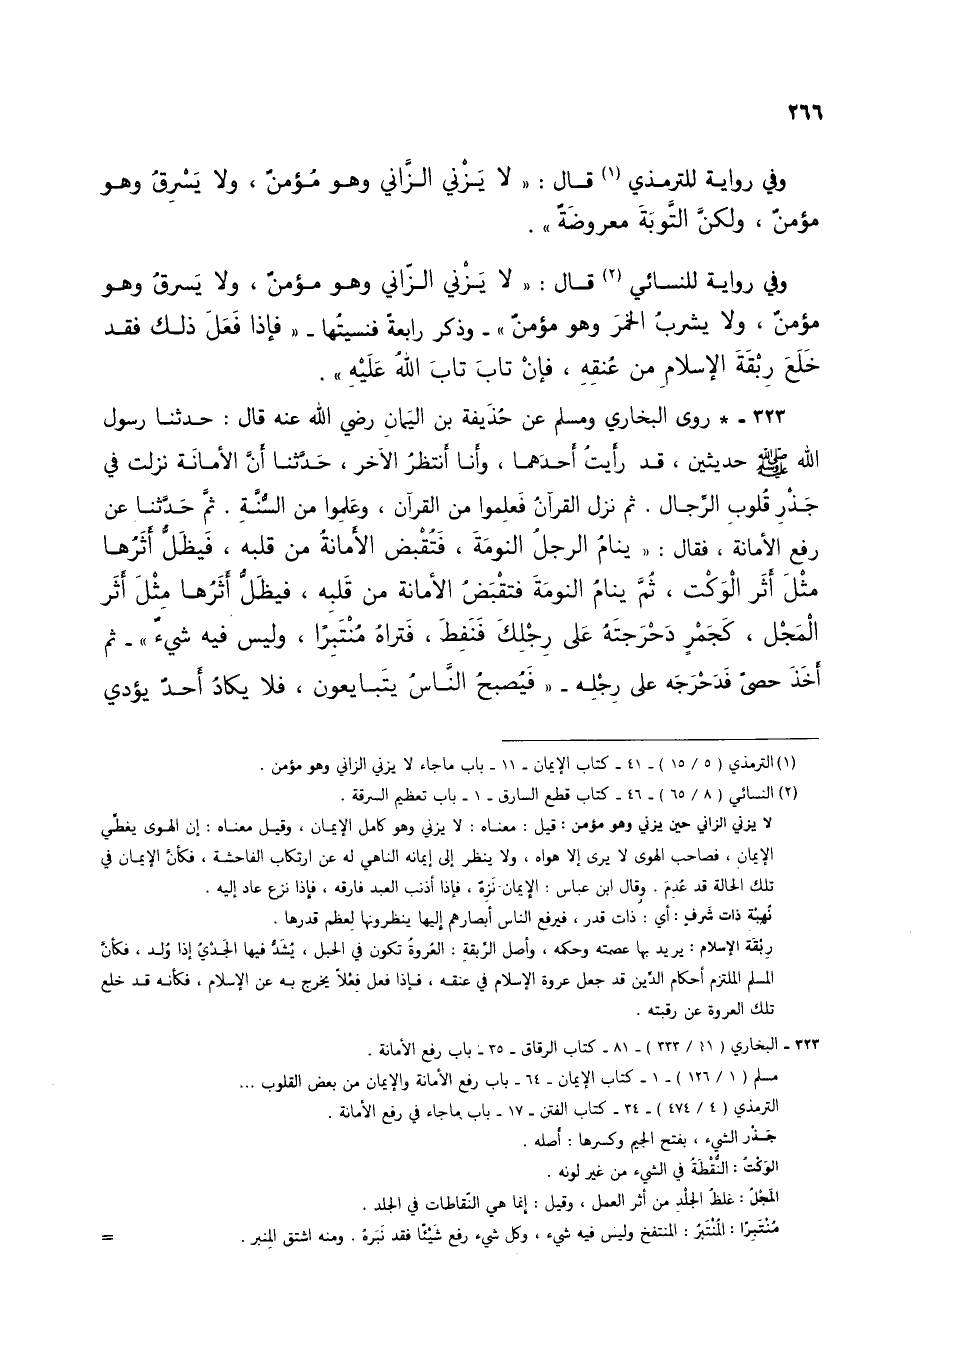 ٢٦٦
وفي روايـة للترمـذي (١) قـال : « لا يَـزْني الـزَّاني وهـو مُـؤمنٌ ، ولا يَسْرِقُ وهـو
مؤمنٌ ، ولكنَّ التَّوبَةَ معروضَةٌ » .
وفي روايـة للنسـائي (٢) قـال : « لا يَـزْني الـزّاني وهـو مـؤمنٌ ، ولا يَسرِقُ وهـو
مؤمنٌ ، ولا يشربُ الخمرَ وهو مؤمنٌ » ـ وذكر رابعةً فنسيتُها ـ « فإذا فَعَلَ ذلـك فقـد
خَلَعَ رِبْقَةَ الإسلام من عُنقِهِ ، فإنْ تابَ تابَ اللهُ عَلَيْهِ » .
٣٢٣ ـ * روى البخاري ومسلم عن حُذَيفة بن اليَمان رضي الله عنه قال : حـدثنـا رسول
الله ﷺ حديثين ، قـد رأيتُ أحـدَهمـا ، وأنـا أنتظرُ الآخر ، حَـدَّثنـا أنَّ الأمـانَـة نزلت في
جَـذْرِ قُلوب الرِّجـال . ثم نزل القرآنُ فَعلِموا من القرآن ، وعَلِموا من السُّنَّـةِ . ثمَّ حَـدَّثنـا عن
رفع الأمانة ، فقال : « ينامُ الرجلُ النومَةَ ، فَتُقْبض الأمانةُ من قلبه ، فَيظَلُّ أثَرُهـا
مثْلَ أثَرِ الْوَكْت ، ثُمَّ ينامُ النومَةَ فتقْبَضُ الأمانة من قَلبه ، فيظَلُّ أثَرُهـا مثْلَ أثَر
الْمَجْل ، كَجَمْرٍ دَحْرَجتَهُ عَلى رِجْلِكَ فَنَفِطَ ، فَتراهُ مُنْتَبِرًا ، وليس فيه شيءٌ » ـ ثم
أخَذَ حصىً فَدَحْرَجَه على رِجْلِـه ـ « فَيُصبحُ النَّاسُ يتَبـايعون ، فلا يكادُ أحـدٌ يؤدي
(١) الترمذي ( ٥ / ١٥ ) ـ ٤١ ـ كتاب الإيمان ـ ١١ ـ باب ماجاء لا يزني الزاني وهو مؤمن .
(٢) النسائي ( ٨ / ٦٥ ) ـ ٤٦ ـ كتاب قطع السارق ـ ١ ـ باب تعظيم السرقة .
لا يزني الزاني حين يزني وهو مؤمن : قيل : معناه : لا يزني وهو كامل الإيمـان ، وقيـل معنـاه : إن الهوى يغطّي
الإيمان ، فصاحب الهوى لا يرى إلا هواه ، ولا ينظر إلى إيمانه الناهي له عن ارتكاب الفاحشـة ، فكأنَّ الإيمـان في
تلك الحالة قد عُدمَ . وقال ابن عباس : الإيمان نَزِهٌ ، فإذا أذنب العبد فارقه ، فإذا نزع عاد إليه .
نُهبَة ذات شَرف : أي : ذات قدر ، فيرفع الناس أبصارهم إليها ينظرونها لعظم قدرها .
رِبْقَة الإسلام : يريد بها عصمته وحكمه ، وأصل الرِّبقة : العُروةُ تكون في الحبل ، يُشَدُّ فيها الجَديُ إذا وُلد ، فكأنَّ
المسلم الملتزم أحكام الدِّين قد جعل عروة الإسلام في عنقـه ، فـإذا فعل فِعْلاً يخرج بـه عن الإسلام ، فكأنـه قـد خلع
تلك العروة عن رقبته .
٣٢٣ ـ البخاري ( ١١ / ٣٣٣ ) ـ ٨١ ـ كتاب الرقاق ـ ٣٥ ـ باب رفع الأمانة .
مسلم ( ١ / ١٢٦ ) ـ ١ ـ كتاب الإيمان ـ ٦٤ ـ باب رفع الأمانة والإيمان من بعض القلوب ...
الترمذي ( ٤ / ٤٧٤ ) ـ ٣٤ ـ كتاب الفتن ـ ١٧ ـ باب ماجاء في رفع الأمانة .
جَـذْر الشيء ، بفتح الجيم وكسرها : أصله .
الوَكْتُ : النُّقْطَةُ في الشيء من غير لونه .
المَجْلُ : غلظُ الجِلْدِ من أثر العمل ، وقيل : إنما هي النّفاطات في الجلد .
مُنْتَبِرًا : المُنْتَبَرُ : المنتفخ وليس فيه شيء ، وكل شيء رفع شَيْئًا فقد نَبَرَهُ . ومنه اشتق المِنبر .
=